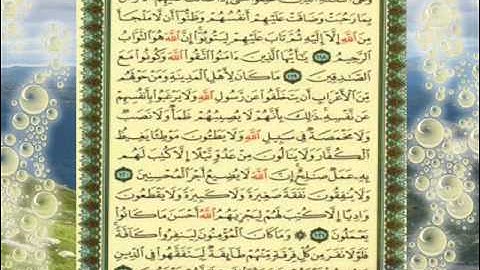 بِمَا رَحُبَتْ وَضَاقَتْ عَلَيْهِمْ أَنفُسُهُمْ وَظَنُّوٓا۟ أَن لَّا مَلْجَأَ
مِنَ ٱللَّهِ إِلَّآ إِلَيْهِ ثُمَّ تَابَ عَلَيْهِمْ لِيَتُوبُوٓا۟ إِنَّ ٱللَّهَ هُوَ ٱلتَّوَّابُ
ٱلرَّحِيمُ ١١٨ يَـٰٓأَيُّهَا ٱلَّذِينَ ءَامَنُوا۟ ٱتَّقُوا۟ ٱللَّهَ وَكُونُوا۟ مَعَ
ٱلصَّـٰدِقِينَ ١١٩ مَا كَانَ لِأَهْلِ ٱلْمَدِينَةِ وَمَنْ حَوْلَهُم
مِّنَ ٱلْأَعْرَابِ أَن يَتَخَلَّفُوا۟ عَن رَّسُولِ ٱللَّهِ وَلَا يَرْغَبُوا۟ بِأَنفُسِهِمْ
عَن نَّفْسِهِۦ ذَٰلِكَ بِأَنَّهُمْ لَا يُصِيبُهُمْ ظَمَأٌ وَلَا نَصَبٌ
وَلَا مَخْمَصَةٌ فِى سَبِيلِ ٱللَّهِ وَلَا يَطَـُٔونَ مَوْطِئًا يَغِيظُ
ٱلْكُفَّارَ وَلَا يَنَالُونَ مِنْ عَدُوٍّ نَّيْلًا إِلَّا كُتِبَ لَهُم
بِهِۦ عَمَلٌ صَـٰلِحٌ إِنَّ ٱللَّهَ لَا يُضِيعُ أَجْرَ ٱلْمُحْسِنِينَ ١٢٠
وَلَا يُنفِقُونَ نَفَقَةً صَغِيرَةً وَلَا كَبِيرَةً وَلَا يَقْطَعُونَ
وَادِيًا إِلَّا كُتِبَ لَهُمْ لِيَجْزِيَهُمُ ٱللَّهُ أَحْسَنَ مَا كَانُوا۟
يَعْمَلُونَ ١٢١ ۞ وَمَا كَانَ ٱلْمُؤْمِنُونَ لِيَنفِرُوا۟ كَآفَّةً
فَلَوْلَا نَفَرَ مِن كُلِّ فِرْقَةٍ مِّنْهُمْ طَآئِفَةٌ لِّيَتَفَقَّهُوا۟ فِى ٱلدِّينِ